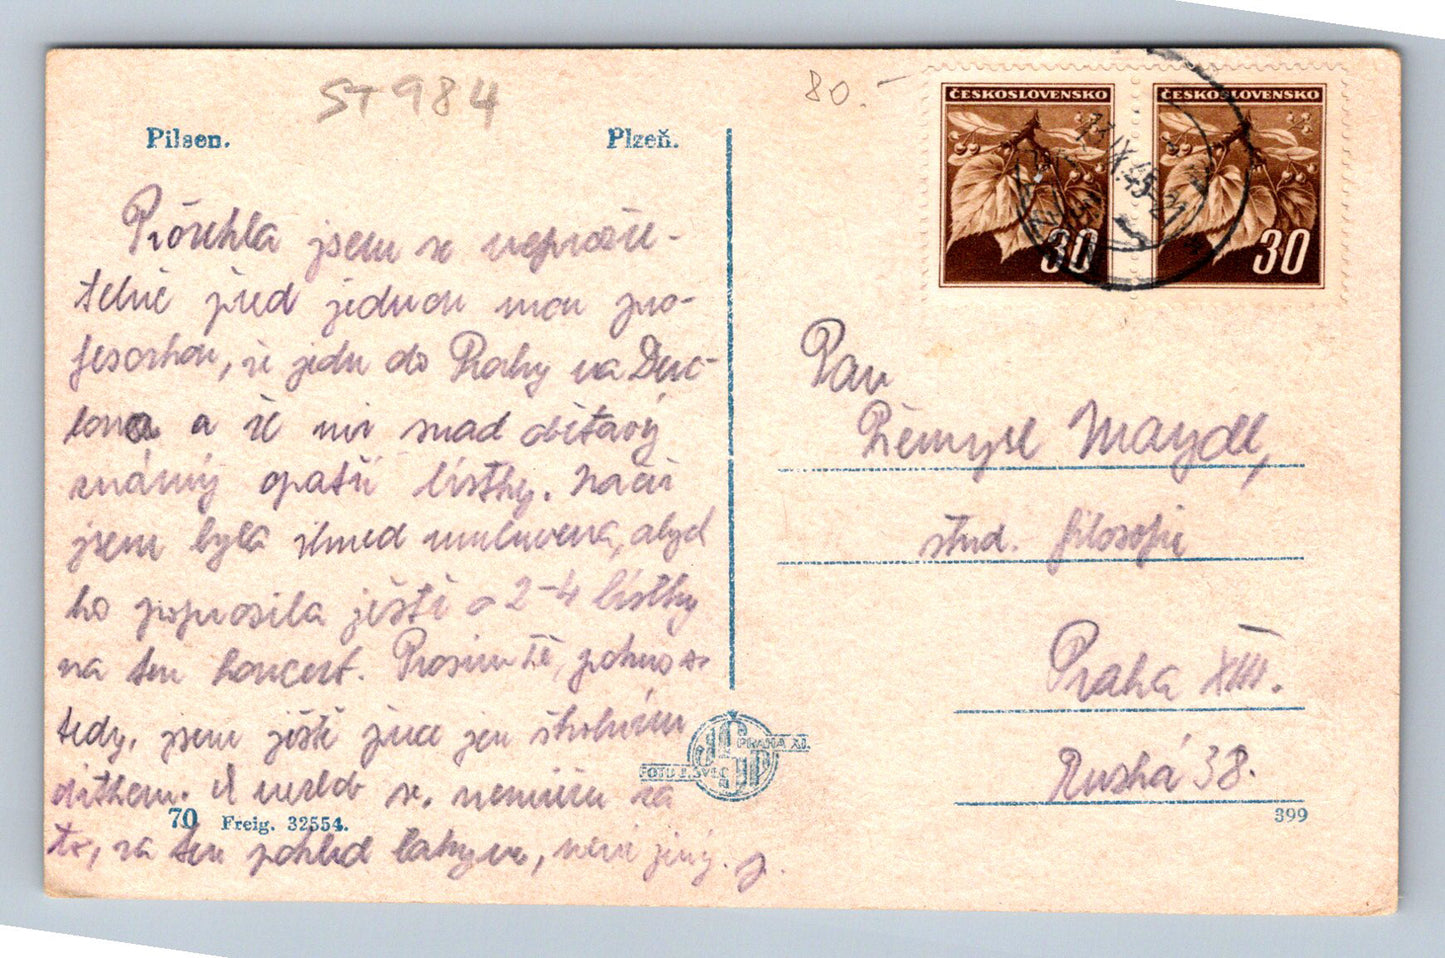 ST 984
80.-
Pilsen.
Plzeň.
ČESKOSLOVENSKO
30
ČESKOSLOVENSKO
30
IX.45-21
Prořekla jsem se neprozře-
telně před jednou mou pro-
fesorkou, že jedu do Prahy na
a že mi snad obětavý
známý opatří lístky. Načež
jsem byla ihned umluvena, abych
ho poprosila ještě o 2-4 lístky
na ten koncert. Prosím Tě, pokus se
tedy, jsem ještě přece jen školním
dítkem. A nezlob se, nemůžu za
to, za ten pohled taky ne, není jiný. J.
Pan
Přemysl Maydl,
stud. filosofie
Praha XIII.
Ruská 38.
JSP
PRAHA XI.
FOTO J. ŠVEC
70 Freig. 32554.
399